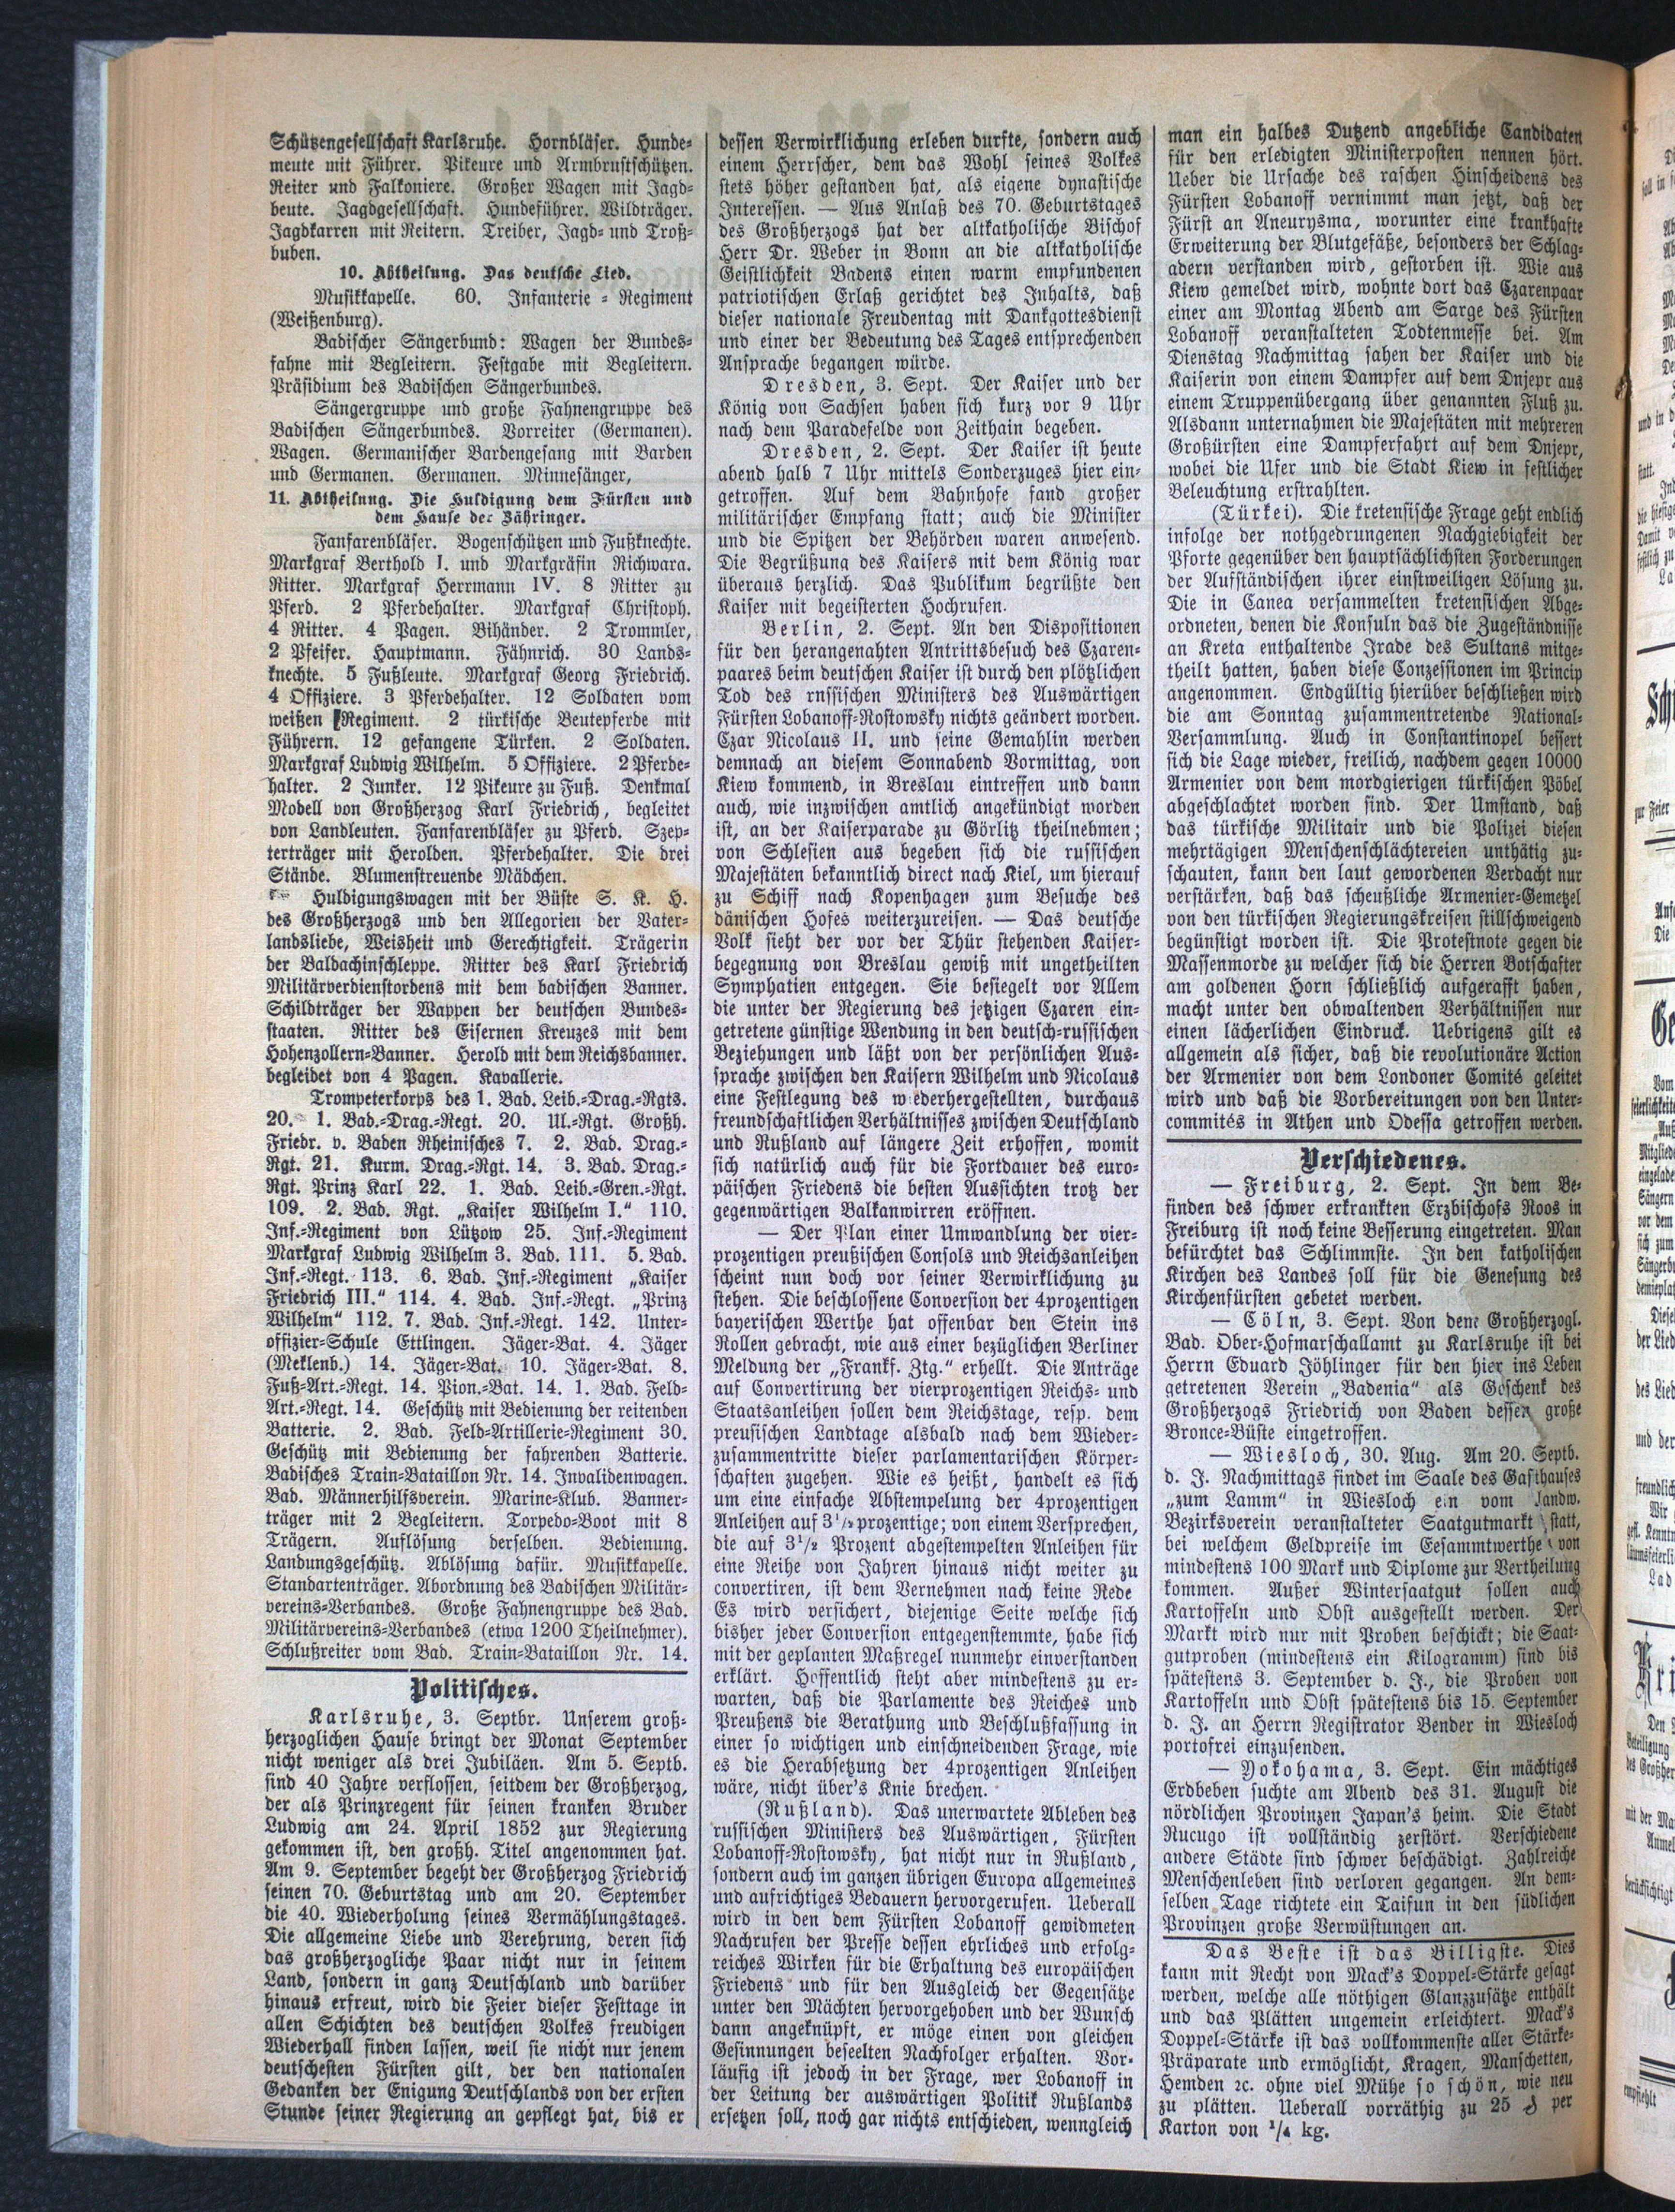 Schützengesellschaft Karlsruhe. Hornbläser. Hunde-
meute mit Führer. Pikeure und Armbrustschützen.
Reiter und Falkoniere. Großer Wagen mit Jagd-
beute. Jagdgesellschaft. Hundeführer. Wildträger.
Jagdkarren mit Reitern. Treiber, Jagd- und Troß-
buben.
10. Abtheilung. Das deutsche Lied.
Musikkapelle. 60. Infanterie-Regiment
(Weißenburg).
Badischer Sängerbund: Wagen der Bundes-
fahne mit Begleitern. Festgabe mit Begleitern.
Präsidium des Badischen Sängerbundes.
Sängergruppe und große Fahnengruppe des
Badischen Sängerbundes. Vorreiter (Germanen).
Wagen. Germanischer Bardengesang mit Barden
und Germanen. Germanen. Minnesänger,
11. Abtheilung. Die Huldigung dem Fürsten und
dem Hause der Zähringer.
Fanfarenbläser. Bogenschützen und Fußknechte.
Markgraf Berthold I. und Markgräfin Richwara.
Ritter. Markgraf Herrmann IV. 8 Ritter zu
Pferd. 2 Pferdehalter. Markgraf Christoph.
4 Ritter. 4 Pagen. Bihänder. 2 Trommler,
2 Pfeifer. Hauptmann. Fähnrich. 30 Lands-
knechte. 5 Fußleute. Markgraf Georg Friedrich.
4 Offiziere. 3 Pferdehalter. 12 Soldaten vom
weißen Regiment. 2 türkische Beutepferde mit
Führern. 12 gefangene Türken. 2 Soldaten.
Markgraf Ludwig Wilhelm. 5 Offiziere. 2 Pferde-
halter. 2 Junker. 12 Pikeure zu Fuß. Denkmal
Modell von Großherzog Karl Friedrich, begleitet
von Landleuten. Fanfarenbläser zu Pferd. Szep-
terträger mit Herolden. Pferdehalter. Die drei
Stände. Blumenstreuende Mädchen.
Huldigungswagen mit der Büste S. K. H.
des Großherzogs und den Allegorien der Vater-
landsliebe, Weisheit und Gerechtigkeit. Trägerin
der Baldachinschleppe. Ritter des Karl Friedrich
Militärverdienstordens mit dem badischen Banner.
Schildträger der Wappen der deutschen Bundes-
staaten. Ritter des Eisernen Kreuzes mit dem
Hohenzollern-Banner. Herold mit dem Reichsbanner.
begleidet von 4 Pagen. Kavallerie.
Trompeterkorps des 1. Bad. Leib.-Drag.-Rgts.
20. 1. Bad.-Drag.-Regt. 20. Ul.-Rgt. Großh.
Friedr. v. Baden Rheinisches 7. 2. Bad. Drag.-
Rgt. 21. Kurm. Drag.-Rgt. 14. 3. Bad. Drag.-
Rgt. Prinz Karl 22. 1. Bad. Leib.-Gren.-Rgt.
109. 2. Bad. Rgt. „Kaiser Wilhelm I.“ 110.
Inf.-Regiment von Lützow 25. Inf.-Regiment
Markgraf Ludwig Wilhelm 3. Bad. 111. 5. Bad.
Inf.-Regt. 113. 6. Bad. Inf.-Regiment „Kaiser
Friedrich III.“ 114. 4. Bad. Inf.-Regt. „Prinz
Wilhelm“ 112. 7. Bad. Inf.-Regt. 142. Unter-
offizier-Schule Ettlingen. Jäger-Bat. 4. Jäger
(Meklenb.) 14. Jäger-Bat. 10. Jäger-Bat. 8.
Fuß-Art.-Regt. 14. Pion.-Bat. 14. 1. Bad. Feld-
Art.-Regt. 14. Geschütz mit Bedienung der reitenden
Batterie. 2. Bad. Feld-Artillerie-Regiment 30.
Geschütz mit Bedienung der fahrenden Batterie.
Badisches Train-Bataillon Nr. 14. Invalidenwagen.
Bad. Männerhilfsverein. Marine-Klub. Banner-
träger mit 2 Begleitern. Torpedo-Boot mit 8
Trägern. Auflösung derselben. Bedienung.
Landungsgeschütz. Ablösung dafür. Musikkapelle.
Standartenträger. Abordnung des Badischen Militär-
vereins-Verbandes. Große Fahnengruppe des Bad.
Militärvereins-Verbandes (etwa 1200 Theilnehmer).
Schlußreiter vom Bad. Train-Bataillon Nr. 14.
Politisches.
Karlsruhe, 3. Septbr. Unserem groß-
herzoglichen Hause bringt der Monat September
nicht weniger als drei Jubiläen. Am 5. Septb.
sind 40 Jahre verflossen, seitdem der Großherzog,
der als Prinzregent für seinen kranken Bruder
Ludwig am 24. April 1852 zur Regierung
gekommen ist, den großh. Titel angenommen hat.
Am 9. September begeht der Großherzog Friedrich
seinen 70. Geburtstag und am 20. September
die 40. Wiederholung seines Vermählungstages.
Die allgemeine Liebe und Verehrung, deren sich
das großherzogliche Paar nicht nur in seinem
Land, sondern in ganz Deutschland und darüber
hinaus erfreut, wird die Feier dieser Festtage in
allen Schichten des deutschen Volkes freudigen
Wiederhall finden lassen, weil sie nicht nur jenem
deutschesten Fürsten gilt, der den nationalen
Gedanken der Enigung Deutschlands von der ersten
Stunde seiner Regierung an gepflegt hat, bis er
dessen Verwirklichung erleben durfte, sondern auch
einem Herrscher, dem das Wohl seines Volkes
stets höher gestanden hat, als eigene dynastische
Interessen. — Aus Anlaß des 70. Geburtstages
des Großherzogs hat der altkatholische Bischof
Herr Dr. Weber in Bonn an die altkatholische
Geistlichkeit Badens einen warm empfundenen
patriotischen Erlaß gerichtet des Inhalts, daß
dieser nationale Freudentag mit Dankgottesdienst
und einer der Bedeutung des Tages entsprechenden
Ansprache begangen würde.
Dresden, 3. Sept. Der Kaiser und der
König von Sachsen haben sich kurz vor 9 Uhr
nach dem Paradefelde von Zeithain begeben.
Dresden, 2. Sept. Der Kaiser ist heute
abend halb 7 Uhr mittels Sonderzuges hier ein-
getroffen. Auf dem Bahnhofe fand großer
militärischer Empfang statt; auch die Minister
und die Spitzen der Behörden waren anwesend.
Die Begrüßung des Kaisers mit dem König war
überaus herzlich. Das Publikum begrüßte den
Kaiser mit begeisterten Hochrufen.
Berlin, 2. Sept. An den Dispositionen
für den herangenahten Antrittsbesuch des Czaren-
paares beim deutschen Kaiser ist durch den plötzlichen
Tod des rnssischen Ministers des Auswärtigen
Fürsten Lobanoff-Rostowsky nichts geändert worden.
Czar Nicolaus II. und seine Gemahlin werden
demnach an diesem Sonnabend Vormittag, von
Kiew kommend, in Breslau eintreffen und dann
auch, wie inzwischen amtlich angekündigt worden
ist, an der Kaiserparade zu Görlitz theilnehmen;
von Schlesien aus begeben sich die russischen
Majestäten bekanntlich direct nach Kiel, um hierauf
zu Schiff nach Kopenhagen zum Besuche des
dänischen Hofes weiterzureisen. — Das deutsche
Volk sieht der vor der Thür stehenden Kaiser-
begegnung von Breslau gewiß mit ungetheilten
Symphatien entgegen. Sie besiegelt vor Allem
die unter der Regierung des jetzigen Czaren ein-
getretene günstige Wendung in den deutsch-russischen
Beziehungen und läßt von der persönlichen Aus-
sprache zwischen den Kaisern Wilhelm und Nicolaus
eine Festlegung des wiederhergestellten, durchaus
freundschaftlichen Verhältnisses zwischen Deutschland
und Rußland auf längere Zeit erhoffen, womit
sich natürlich auch für die Fortdauer des euro-
päischen Friedens die besten Aussichten trotz der
gegenwärtigen Balkanwirren eröffnen.
— Der Plan einer Umwandlung der vier-
prozentigen preußischen Consols und Reichsanleihen
scheint nun doch vor seiner Verwirklichung zu
stehen. Die beschlossene Conversion der 4prozentigen
bayerischen Werthe hat offenbar den Stein ins
Rollen gebracht, wie aus einer bezüglichen Berliner
Meldung der „Frankf. Ztg.“ erhellt. Die Anträge
auf Convertirung der vierprozentigen Reichs- und
Staatsanleihen sollen dem Reichstage, resp. dem
preusischen Landtage alsbald nach dem Wieder-
zusammentritte dieser parlamentarischen Körper-
schaften zugehen. Wie es heißt, handelt es sich
um eine einfache Abstempelung der 4prozentigen
Anleihen auf 3½prozentige; von einem Versprechen,
die auf 3½ Prozent abgestempelten Anleihen für
eine Reihe von Jahren hinaus nicht weiter zu
convertiren, ist dem Vernehmen nach keine Rede
Es wird versichert, diejenige Seite welche sich
bisher jeder Conversion entgegenstemmte, habe sich
mit der geplanten Maßregel nunmehr einverstanden
erklärt. Hoffentlich steht aber mindestens zu er-
warten, daß die Parlamente des Reiches und
Preußens die Berathung und Beschlußfassung in
einer so wichtigen und einschneidenden Frage, wie
es die Herabsetzung der 4prozentigen Anleihen
wäre, nicht über's Knie brechen.
(Rußland). Das unerwartete Ableben des
russischen Ministers des Auswärtigen, Fürsten
Lobanoff-Rostowsky, hat nicht nur in Rußland,
sondern auch im ganzen übrigen Europa allgemeines
und aufrichtiges Bedauern hervorgerufen. Ueberall
wird in den dem Fürsten Lobanoff gewidmeten
Nachrufen der Presse dessen ehrliches und erfolg-
reiches Wirken für die Erhaltung des europäischen
Friedens und für den Ausgleich der Gegensätze
unter den Mächten hervorgehoben und der Wunsch
dann angeknüpft, er möge einen von gleichen
Gesinnungen beseelten Nachfolger erhalten. Vor-
läufig ist jedoch in der Frage, wer Lobanoff in
der Leitung der auswärtigen Politik Rußlands
ersetzen soll, noch gar nichts entschieden, wenngleich
man ein halbes Dutzend angebliche Candidaten
für den erledigten Ministerposten nennen hört.
Ueber die Ursache des raschen Hinscheidens des
Fürsten Lobanoff vernimmt man jetzt, daß der
Fürst an Aneurysma, worunter eine krankhafte
Erweiterung der Blutgefäße, besonders der Schlag-
adern verstanden wird, gestorben ist. Wie aus
Kiew gemeldet wird, wohnte dort das Czarenpaar
einer am Montag Abend am Sarge des Fürsten
Lobanoff veranstalteten Todtenmesse bei. Am
Dienstag Nachmittag sahen der Kaiser und die
Kaiserin von einem Dampfer auf dem Dnjepr aus
einem Truppenübergang über genannten Fluß zu.
Alsdann unternahmen die Majestäten mit mehreren
Großfürsten eine Dampferfahrt auf dem Dnjepr,
wobei die Ufer und die Stadt Kiew in festlicher
Beleuchtung erstrahlten.
(Türkei). Die kretensische Frage geht endlich
infolge der nothgedrungenen Nachgiebigkeit der
Pforte gegenüber den hauptsächlichsten Forderungen
der Aufständischen ihrer einstweiligen Lösung zu.
Die in Canea versammelten kretensischen Abge-
ordneten, denen die Konsuln das die Zugeständnisse
an Kreta enthaltende Irade des Sultans mitge-
theilt hatten, haben diese Conzessionen im Princip
angenommen. Endgültig hierüber beschließen wird
die am Sonntag zusammentretende National-
Versammlung. Auch in Constantinopel bessert
sich die Lage wieder, freilich, nachdem gegen 10000
Armenier von dem mordgierigen türkischen Pöbel
abgeschlachtet worden sind. Der Umstand, daß
das türkische Militair und die Polizei diesen
mehrtägigen Menschenschlächtereien unthätig zu-
schauten, kann den laut gewordenen Verdacht nur
verstärken, daß das scheußliche Armenier-Gemetzel
von den türkischen Regierungskreisen stillschweigend
begünstigt worden ist. Die Protestnote gegen die
Massenmorde zu welcher sich die Herren Botschafter
am goldenen Horn schließlich aufgerafft haben,
macht unter den obwaltenden Verhältnissen nur
einen lächerlichen Eindruck. Uebrigens gilt es
allgemein als sicher, daß die revolutionäre Action
der Armenier von dem Londoner Comité geleitet
wird und daß die Vorbereitungen von den Unter-
commités in Athen und Odessa getroffen werden.
Verschiedenes.
— Freiburg, 2. Sept. In dem Be-
finden des schwer erkrankten Erzbischofs Roos in
Freiburg ist noch keine Besserung eingetreten. Man
befürchtet das Schlimmste. In den katholischen
Kirchen des Landes soll für die Genesung des
Kirchenfürsten gebetet werden.
— Cöln, 3. Sept. Von dem Großherzogl.
Bad. Ober-Hofmarschallamt zu Karlsruhe ist bei
Herrn Eduard Jöhlinger für den hier ins Leben
getretenen Verein „Badenia“ als Geschenk des
Großherzogs Friedrich von Baden dessen große
Bronce-Büste eingetroffen.
— Wiesloch, 30. Aug. Am 20. Septb.
d. J. Nachmittags findet im Saale des Gasthauses
„zum Lamm“ in Wiesloch ein vom landw.
Bezirksverein veranstalteter Saatgutmarkt statt,
bei welchem Geldpreise im Gesammtwerthe von
mindestens 100 Mark und Diplome zur Vertheilung
kommen. Außer Wintersaatgut sollen auch
Kartoffeln und Obst ausgestellt werden. Der
Markt wird nur mit Proben beschickt; die Saat-
gutproben (mindestens ein Kilogramm) sind bis
spätestens 3. September d. J., die Proben von
Kartoffeln und Obst spätestens bis 15. September
d. J. an Herrn Registrator Bender in Wiesloch
portofrei einzusenden.
— Yokohama, 3. Sept. Ein mächtiges
Erdbeben suchte am Abend des 31. August die
nördlichen Provinzen Japan's heim. Die Stadt
Rucugo ist vollständig zerstört. Verschiedene
andere Städte sind schwer beschädigt. Zahlreiche
Menschenleben sind verloren gegangen. An dem-
selben Tage richtete ein Taifun in den südlichen
Provinzen große Verwüstungen an.
Das Beste ist das Billigste. Dies
kann mit Recht von Mack's Doppel-Stärke gesagt
werden, welche alle nöthigen Glanzzusätze enthält
und das Plätten ungemein erleichtert. Mack's
Doppel-Stärke ist das vollkommenste aller Stärke-
Präparate und ermöglicht, Kragen, Manschetten,
Hemden ꝛc. ohne viel Mühe so schön, wie neu
zu plätten. Ueberall vorräthig zu 25 ₰ per
Karton von ¼ kg.